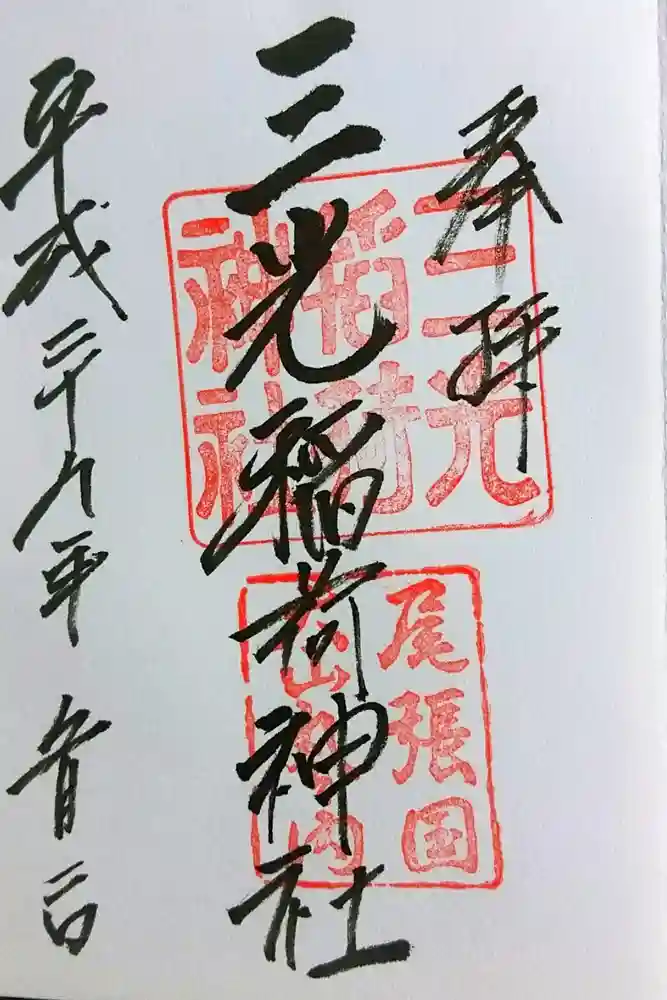 奉拝
三光稲荷神社
平成二十九年 月二日
三光
稲荷
神社
尾張国
犬山城内